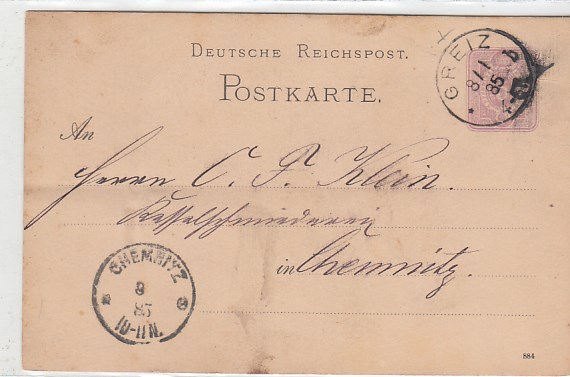 DEUTSCHE REICHSPOST.
POSTKARTE.
GREIZ
8/1
85
An
Herrn C. F. Klein.
Kesselschmiederei
in Chemnitz.
CHEMNITZ
85
10-11N.
884